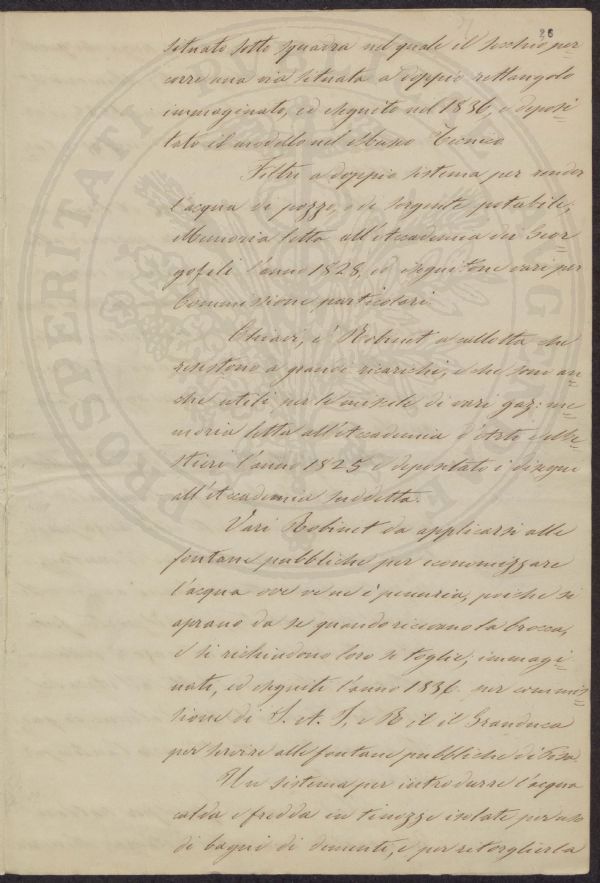 26
situato sotto squadra nel quale il secchio per=
corre una via situata a doppio rettangolo
immaginato, ed eseguito nel 1836, e deposi=
tato il modello nel Museo Tecnico
Filtri a doppio sistema per render
l'acqua di pozzo, e di sorgente potabile;
Memoria letta all'Accademia dei Geor=
gofili l'anno 1828, ed eseguitone vari per
Commissione particolari.
Chiavi, e Robinet a culletta che
resistono a grandi ricarichi, e che sono an=
che utili per le miscele di vari gaz: me=
moria letta all'Accademia d'Arti e Me=
stieri l'anno 1825 e depositato i disegni
all'Accademia suddetta.
Vari Robinet da applicarsi alle
fontane pubbliche per economizzare
l'acqua ove ve ne è penuria, poiche si
aprano da se quando ricevano la brocca,
e si richiudono loro si toglie; immagi=
nati, ed eseguiti l'anno 1836 per commis=
sione di S. A. I. e R. il Granduca
per servire alle fontane pubbliche di Pisa.
Un sistema per introdurre l'acqua
calda e fredda in tinozze isolate per uso
di bagni di dementi, e per ritorglierla
PROSPERITATI PUBLICAE